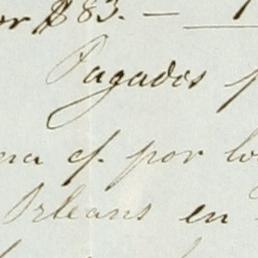 or $83. —
Pagados p
na cf. por lo
Orleans en